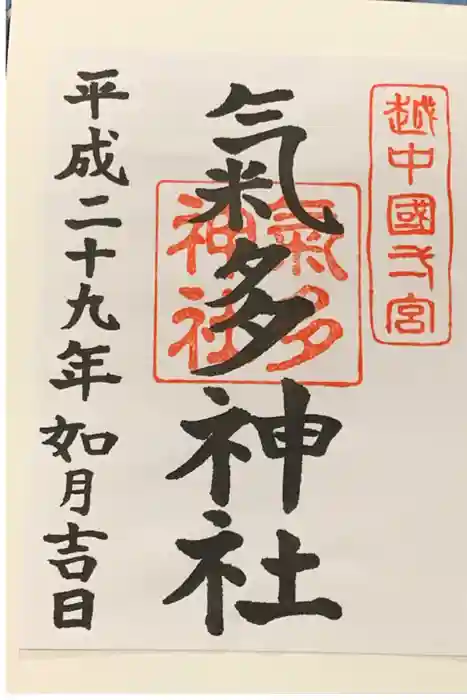 越中國弌宮
氣多神社
氣多
神社
平成二十九年如月吉日